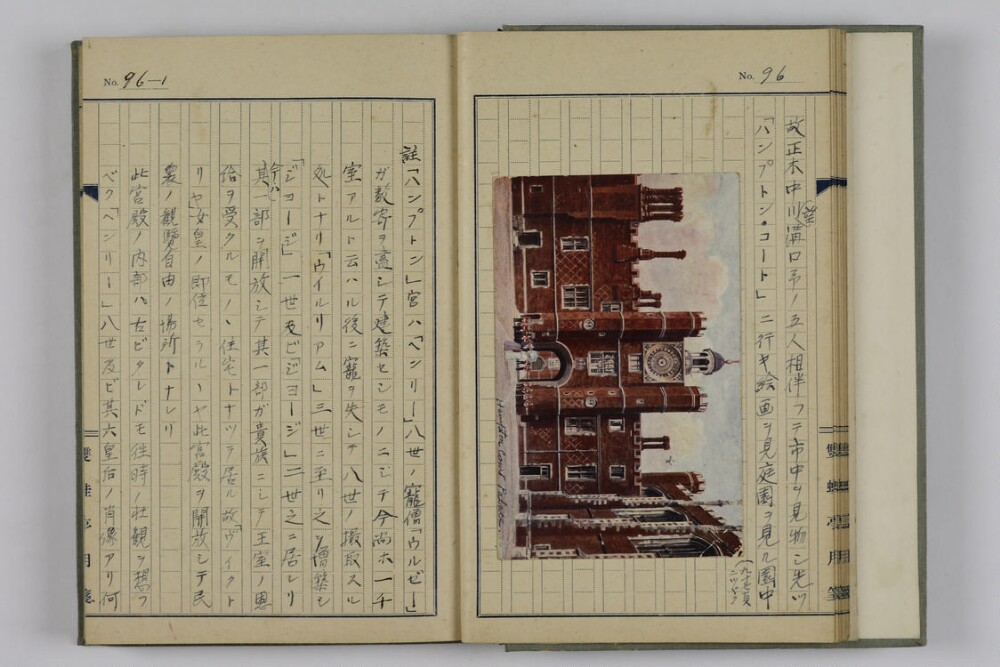 No. 96
故正木中川溝口弟ノ五人相伴フテ市中ヲ見物シ先ツ
望
「ハンプトン・コート」ニ行キ絵画ヲ見庭園ヲ見ル園中
ニツヾク
Hampton Court Palace
No. 96-1
註「ハンプトン」宮ハ「ヘンリー」八世ノ寵僧「ウルゼー」
ガ数寄ヲ盡シテ建築セシモノニシテ今尚ホ一千
室アルト云ハル後ニ寵ヲ失シテ八世ノ撮取スル
処トナリ「ウイルリアム」三世ニ至リ之ヲ増築シ
「ジヨージ」一世及ビ「ジヨージ」二世之ニ居レリ
今ハ
其一部ヲ開放シテ其一部ガ貴族ニシテ王室ノ恩
給ヲ受クルモノヽ住宅トナツテ居ル故「ヴイクト
リヤ女皇ノ即位セラルヽヤ此宮殿ヲ開放シテ民
衆ノ観覧自由ノ場所トナレリ
此宮殿ノ内部ハ古ビタレドモ往時ノ壮観ヲ想フ
ベク「ヘンリー」八世及ビ其六皇后ノ肖像アリ何